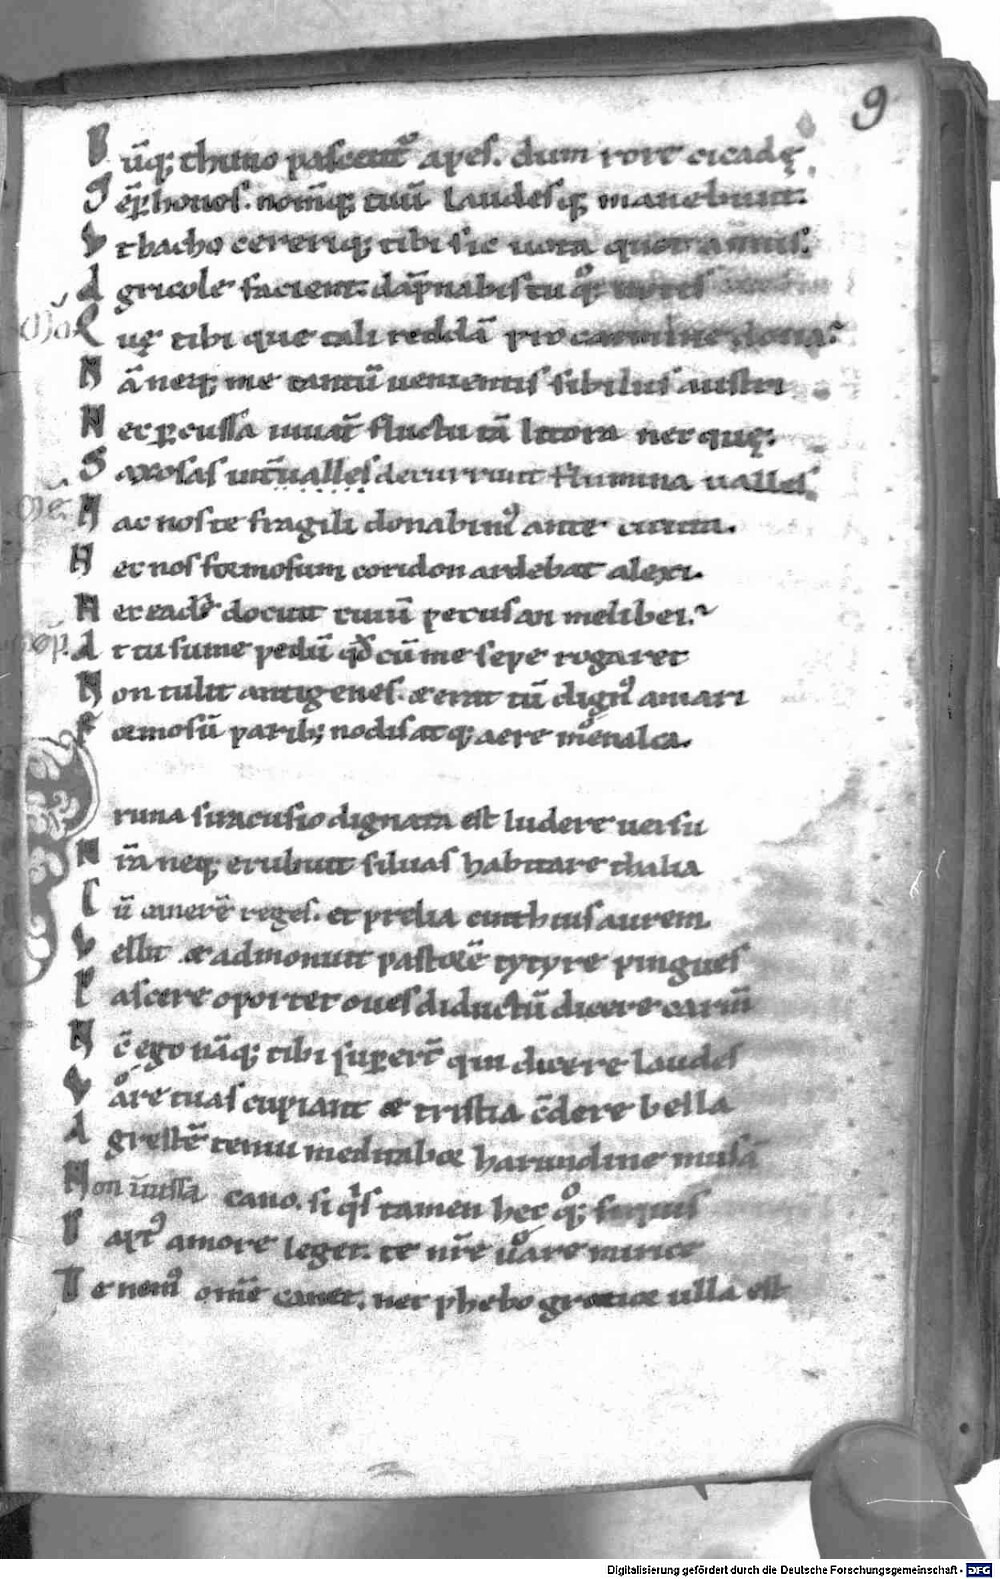 9
D ūq; thimo pascent᷒ apes. dum rore cicadę.
S ēp honos. nom̄q; tuū laudesq; manebunt.
V t bacho cererīq; tibi sic uota quot annis.
A gricole facient. dāpnabis tu qͦq;
Mo Q uę tibi que tali reddā pro carmine dona?
N ā neq; me tantū uenientis sibilus austri
N ec ꝑcussa iuuāt fluctu tā litora nec quę.
S axosas int̄ualles decurrunt flumina ualles
Me. H ac nos te fragili donabim᷒ ante cicuta.
H ec nos formosum coridon ardebat alexi.
H ec eadē docuit cuiū pecus an melibei.
Mop. A t tu sume pedū qđ cū me sepe rogaret
N on tulit antigenes. & erat tū dign᷒ amari
F ormosū parib; nodis atq; aere menalca.
P rima siracusio dignata est ludere uersu
N r̄a neq; erubuit siluas habitare thalia
C ū canerē reges. et prelia cinthius aurem
V ellit & admonuit pastorē tytyre pingues
P ascere oportet oues diductū dicere carm̄
N c̄ ego nāq; tibi suꝑert̄ qui dicere laudes
V are tuas cupiant & tristia c̄dere bella
A grestē tenui meditabor harundine musā
N on iniussa cano. si qͥs tamen hec qͦq; siquis
C apt᷒ amore leget. te nr̄e uare mirice
T e nem᷒ om̄e canet. nec phebo gratior ulla est
Digitalisierung gefördert durch die Deutsche Forschungsgemeinschaft - DFG